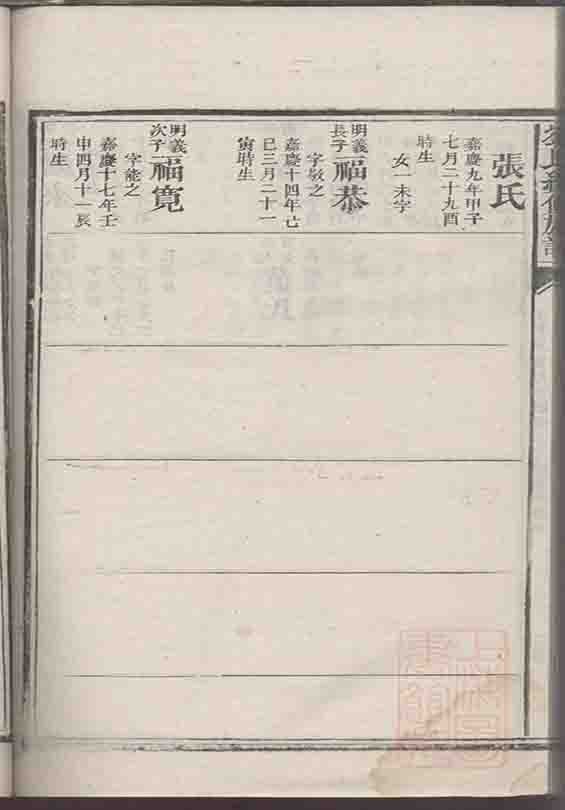 張氏
嘉慶九年甲子
七月二十九酉
時生
女一未字
明義
長子
福恭
字敬之
嘉慶十四年己
巳三月二十一
寅時生
明義
次子
福寬
字能之
嘉慶十七年壬
申四月十一辰
時生